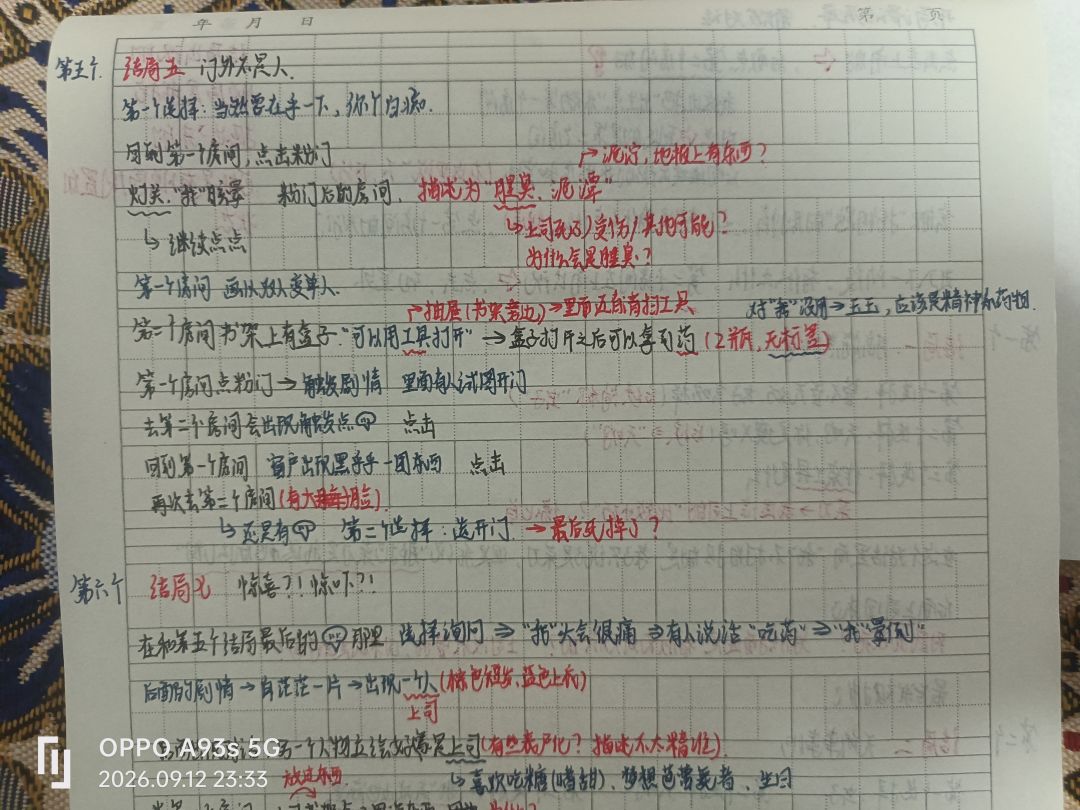 年 月 日 第 页
第五个. 结局五 门外不是人.
第一个选择:当然要在乎一下,你个白痴.
回到第一个房间,点击粉门
泥泞,地板上有东西?
灯关,"我"晕 粉门后的房间,描述为"腥臭、泥潭"
继续点点
上司死(?)/受伤/其他可能?
为什么会是腥臭?
第一个房间 画从双人变单人.
抽屉(书架旁边)→里面还有清扫工具
对"我"没用→五五,应该是精神系药物.
第二个房间书架上有盒子"可以用工具打开"→盒子打开之后可以拿到药(2瓶,无标签)
第一个房间点粉门→触发剧情 里面有人试图开门
去第二个房间会出现触发点 点击
回到第一个房间 窗户出现黑乎乎一团东西 点击
再次去第二个房间(有大脸)
还是有 第二个选择:选开门 →最后死掉了?
第六个 结局七 惊喜?!惊吓?!
在和第五个结局最后的 那里 选择询问 ⇒"我"头会很痛⇒有人说话"吃药"⇒"我"晕倒"
后面的剧情→白茫茫一片→出现一个人(棕色短发、蓝色上衣)
上司
一个人物立绘 是上司(有些丧尸化?描述不太精准)
喜欢吃糖(嗜甜)、梦想芭蕾舞者、生日